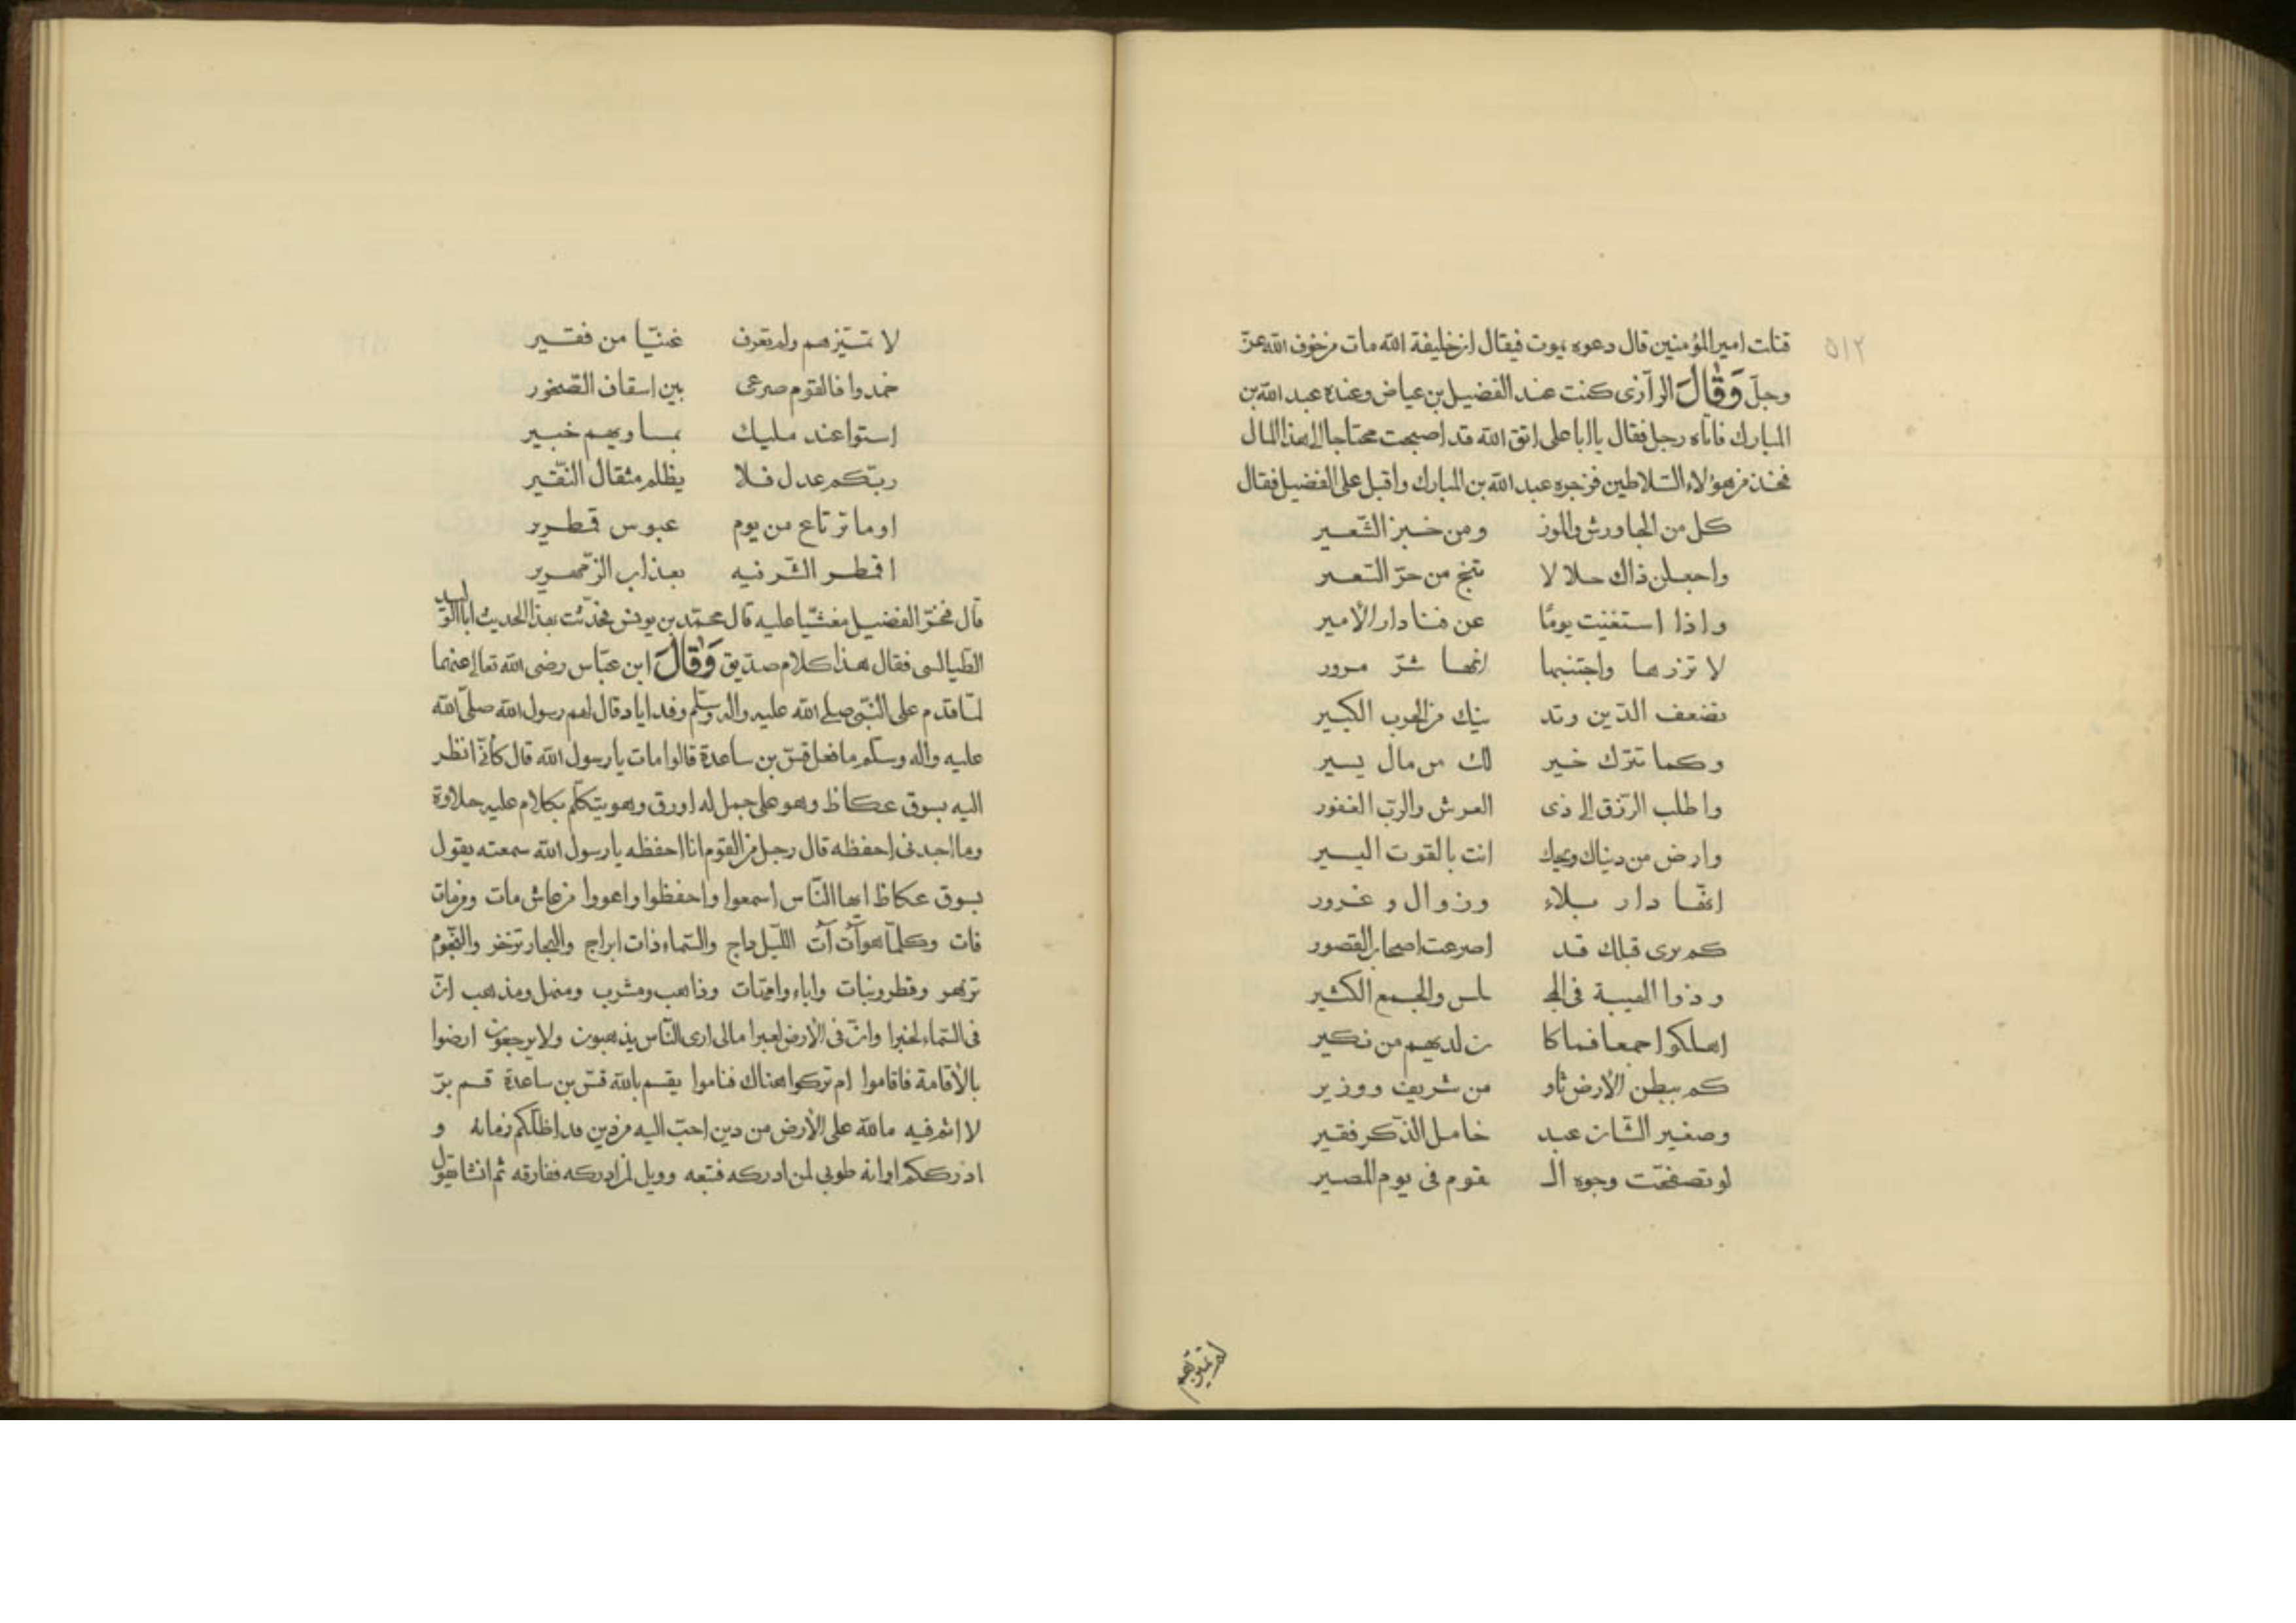 ٥١٢
قتلت امير المؤمنين قال دعوه يموت فيقال ان خليفة الله مات من خوف الله عزّ
وجلّ وَقَالَ الرآزى كنت عند الفضيل بن عياض وعنده عبد الله بن
المبارك فاتاه رجل فقال يا ابا على اتق الله قد اصبحت محتاجا الى هذا المال
فخذ من هؤلاء السّلاطين فزجره عبد الله بن المبارك واقبل على الفضيل فقال
كل من الجاورش والموز ومن خبز الشّعير
واجعلن ذاك حلالا تنج من حرّ السّعير
واذا استغنيت يومًا عن فنا دار الأمير
لا تزرها واجتنبها انها شرّ مرور
تضعف الدّين وتد نيك من الحوب الكبير
وكما تترك خير لك من مال يسير
واطلب الرّزق الى ذى العرش والربّ الغفور
وارض من دنياك ويحك انت بالقوت اليسير
انّها دار بلاء وزوال وغرور
كم برى قبلك قد اصرعت اصحاب القصور
وذوا الهيبة فى المج لس والجمع الكثير
اهلكوا جمعا فما كا ن لديهم من نكير
كم ببطن الأرض ثاو من شريف ووزير
وصغير الشّان عبد خامل الذّكر فقير
لو تصفحّت وجوه ال قوم فى يوم المصير
لم تميزهم
لا تميّزهم ولم تعرف غنيّا من فقير
خمدوا فالقوم صرعى بين اسقاف الصّخور
استوا عند مليك بمساويهم خبير
ربّكم عدل فلا يظلم مثقال النّقير
اوما ترتاع من يوم عبوس قمطرير
اقمطر الشّر فيه بعذاب الزّمهرير
قال فخرّ الفضيل مغشيّا عليه قال محمّد بن يونس فحدّثت بهذا الحديث ابا الوليد
الطّيالسى فقال هذا كلام صدّيق وَقَالَ ابن عبّاس رضى الله تعالى عنهما
لمّا قدم على النّبىّ صلى الله عليه واله وسلّم وفد اياد قال لهم رسول الله صلّى الله
عليه واله وسلّم ما فعل قسّ بن ساعدة قالوا مات يا رسول الله قال كأنّى انظر
اليه بسوق عكاظ وهو على جمل له اورق وهو يتكلّم بكلام عليه حلاوة
وما اجدنى احفظه قال رجل من القوم انا احفظه يا رسول الله سمعته يقول
بسوق عكاظ ايها النّاس اسمعوا واحفظوا واعووا من عاش مات ومن مات
فات وكلّما هو آت آت اللّيل داج والسّماء ذات ابراج والبحار تزخر والنّجوم
تزهر وقطر ونبات واباء وامّهات وذاهب ومشرب ومنهل ومذهب انّ
فى السّماء لخبرا وانّ فى الأرض لعبرا مالى ارى النّاس يذهبون ولا يرجعون ارضوا
بالأقامة فاقاموا ام تركوا هناك فناموا يقسم بالله قسّ بن ساعدة قسم برّ
لا اثم فيه ما لله على الأرض من دين احبّ اليه من دين قد اظلّكم زمانه و
ادرككم اوانه طوبى لمن ادركه فتبعه وويل لمن ادركه ففارقه ثم انشا يقول